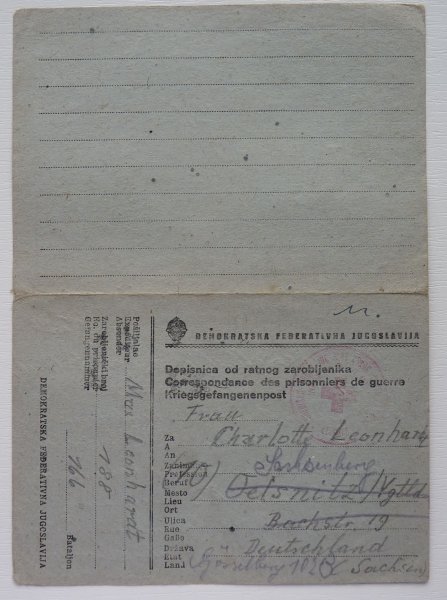 DEMOKRATSKA FEDERATIVNA JUGOSLAVIJA
Dopisnica od ratnog zarobljenika
Correspondance des prisonniers de guerre
Kriegsgefangenenpost
Frau
Za
A
An
Charlotte Leonhardt
Zanimanje
Profession
Beruf
Sachsenberg
Mesto
Lieu
Ort
Oelsnitz/Vogtld
Ulica
Rue
Gaße
Bachstr. 19
Država
État
Land
Deutschland
102 B (Sachsen)
Pošiljalac
Expéditeur
Absender
Max Leonhardt
Zarobljenički broj
No. du prisonnier
Gefangennummer
188
166
Bataljon
DEMOKRATSKA FEDERATIVNA JUGOSLAVIJA